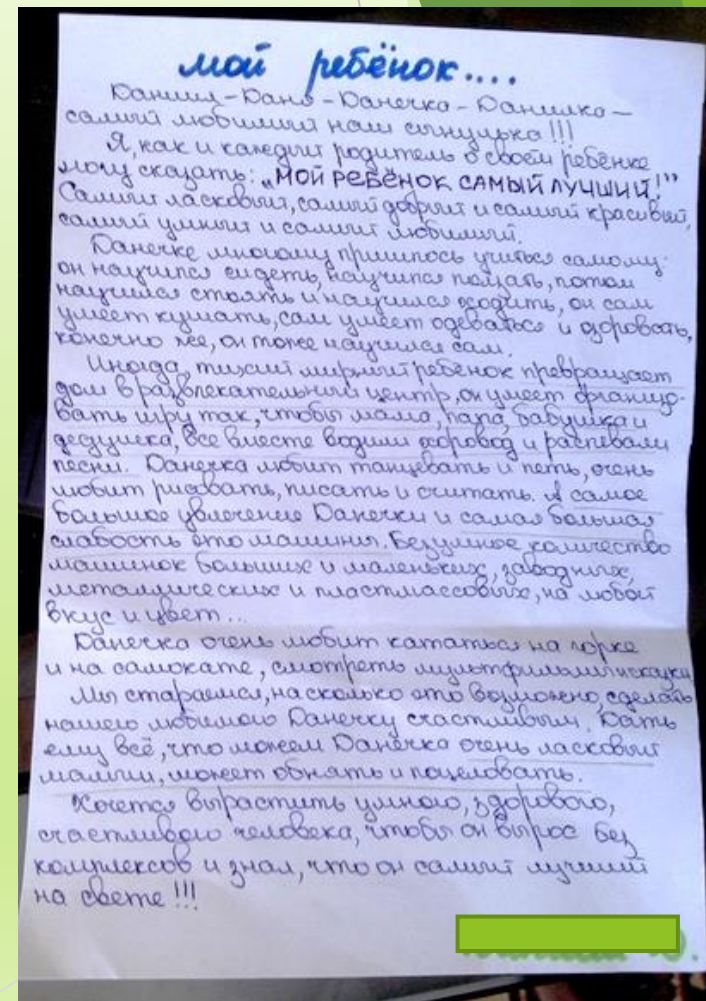 мой ребёнок....
Даниил-Даня-Данечка-Данилка-
самый любимый наш сынулька!!!
Я, как и каждый родитель о своём ребёнке
могу сказать: „МОЙ РЕБЁНОК САМЫЙ ЛУЧШИЙ!"
Самый ласковый, самый добрый и самый красивый,
самый умный и самый любимый.
Данечке многому пришлось учиться самому:
он научился сидеть, научился ползать, потом
научился стоять и научился ходить, он сам
умеет кушать, сам умеет одеваться и
конечно же, он тоже научился сам.
Иногда, тихий мирный ребёнок превращает
дом в развлекательный центр, он умеет организо-
вать игру так, чтобы мама, папа, бабушка и
дедушка, все вместе водили хоровод и распевали
песни. Данечка любит танцевать и петь, очень
любит рисовать, писать и считать. А самое
большое увлечение Данечки и самая большая
слабость это машины. Безумное количество
машинок больших и маленьких, заводных,
металлических и пластмассовых, на любой
вкус и цвет...
Данечка очень любит кататься на горке
и на самокате, смотреть мультфильмы и сказки
Мы стараемся, насколько это возможно, сделать
нашего любимого Данечку счастливым. Дать
ему всё, что можем Данечка очень ласковый
малыш, может обнять и поцеловать.
Хочется вырастить умного, здорового,
счастливого человека, чтобы он вырос без
комплексов и знал, что он самый лучший
на свете!!!